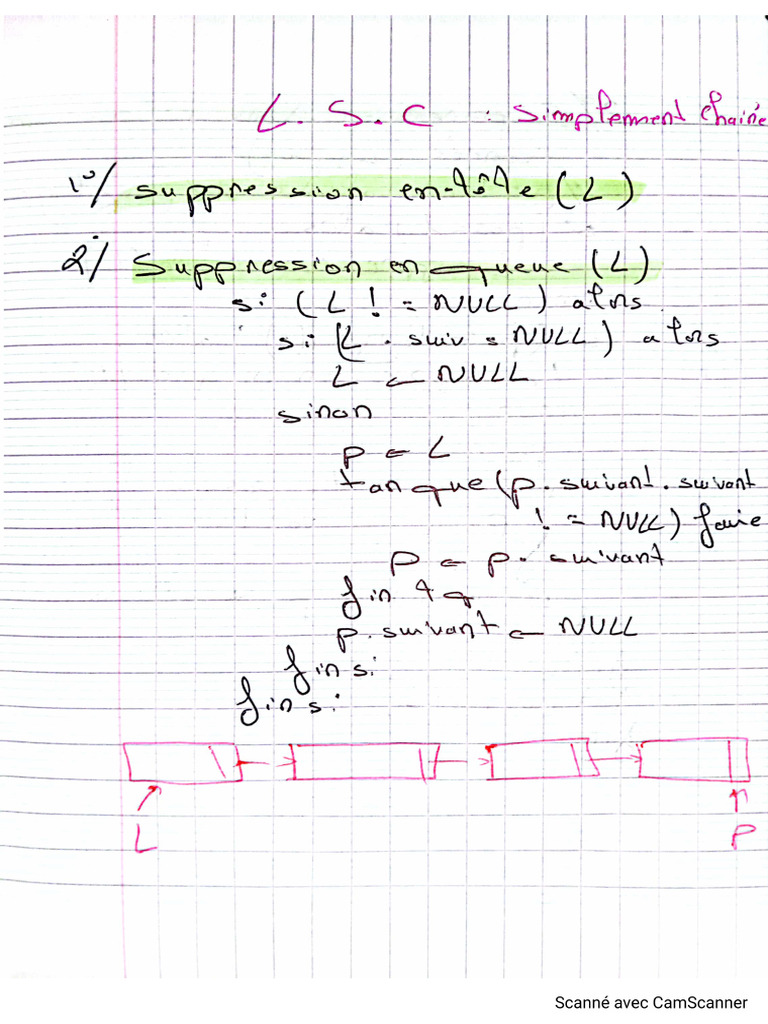 L.S.C : Simplement chainé
1°/ suppression en-tête (L)
2°/ Suppression en queue (L)
si (L != NULL) alors
si (L.suiv = NULL) alors
L ← NULL
sinon
p ← L
tanque (p.suivant.suivant
!= NULL) faire
P ← p.suivant
fin tq
p.suivant ← NULL
finsi
finsi
L
P
Scanné avec CamScanner